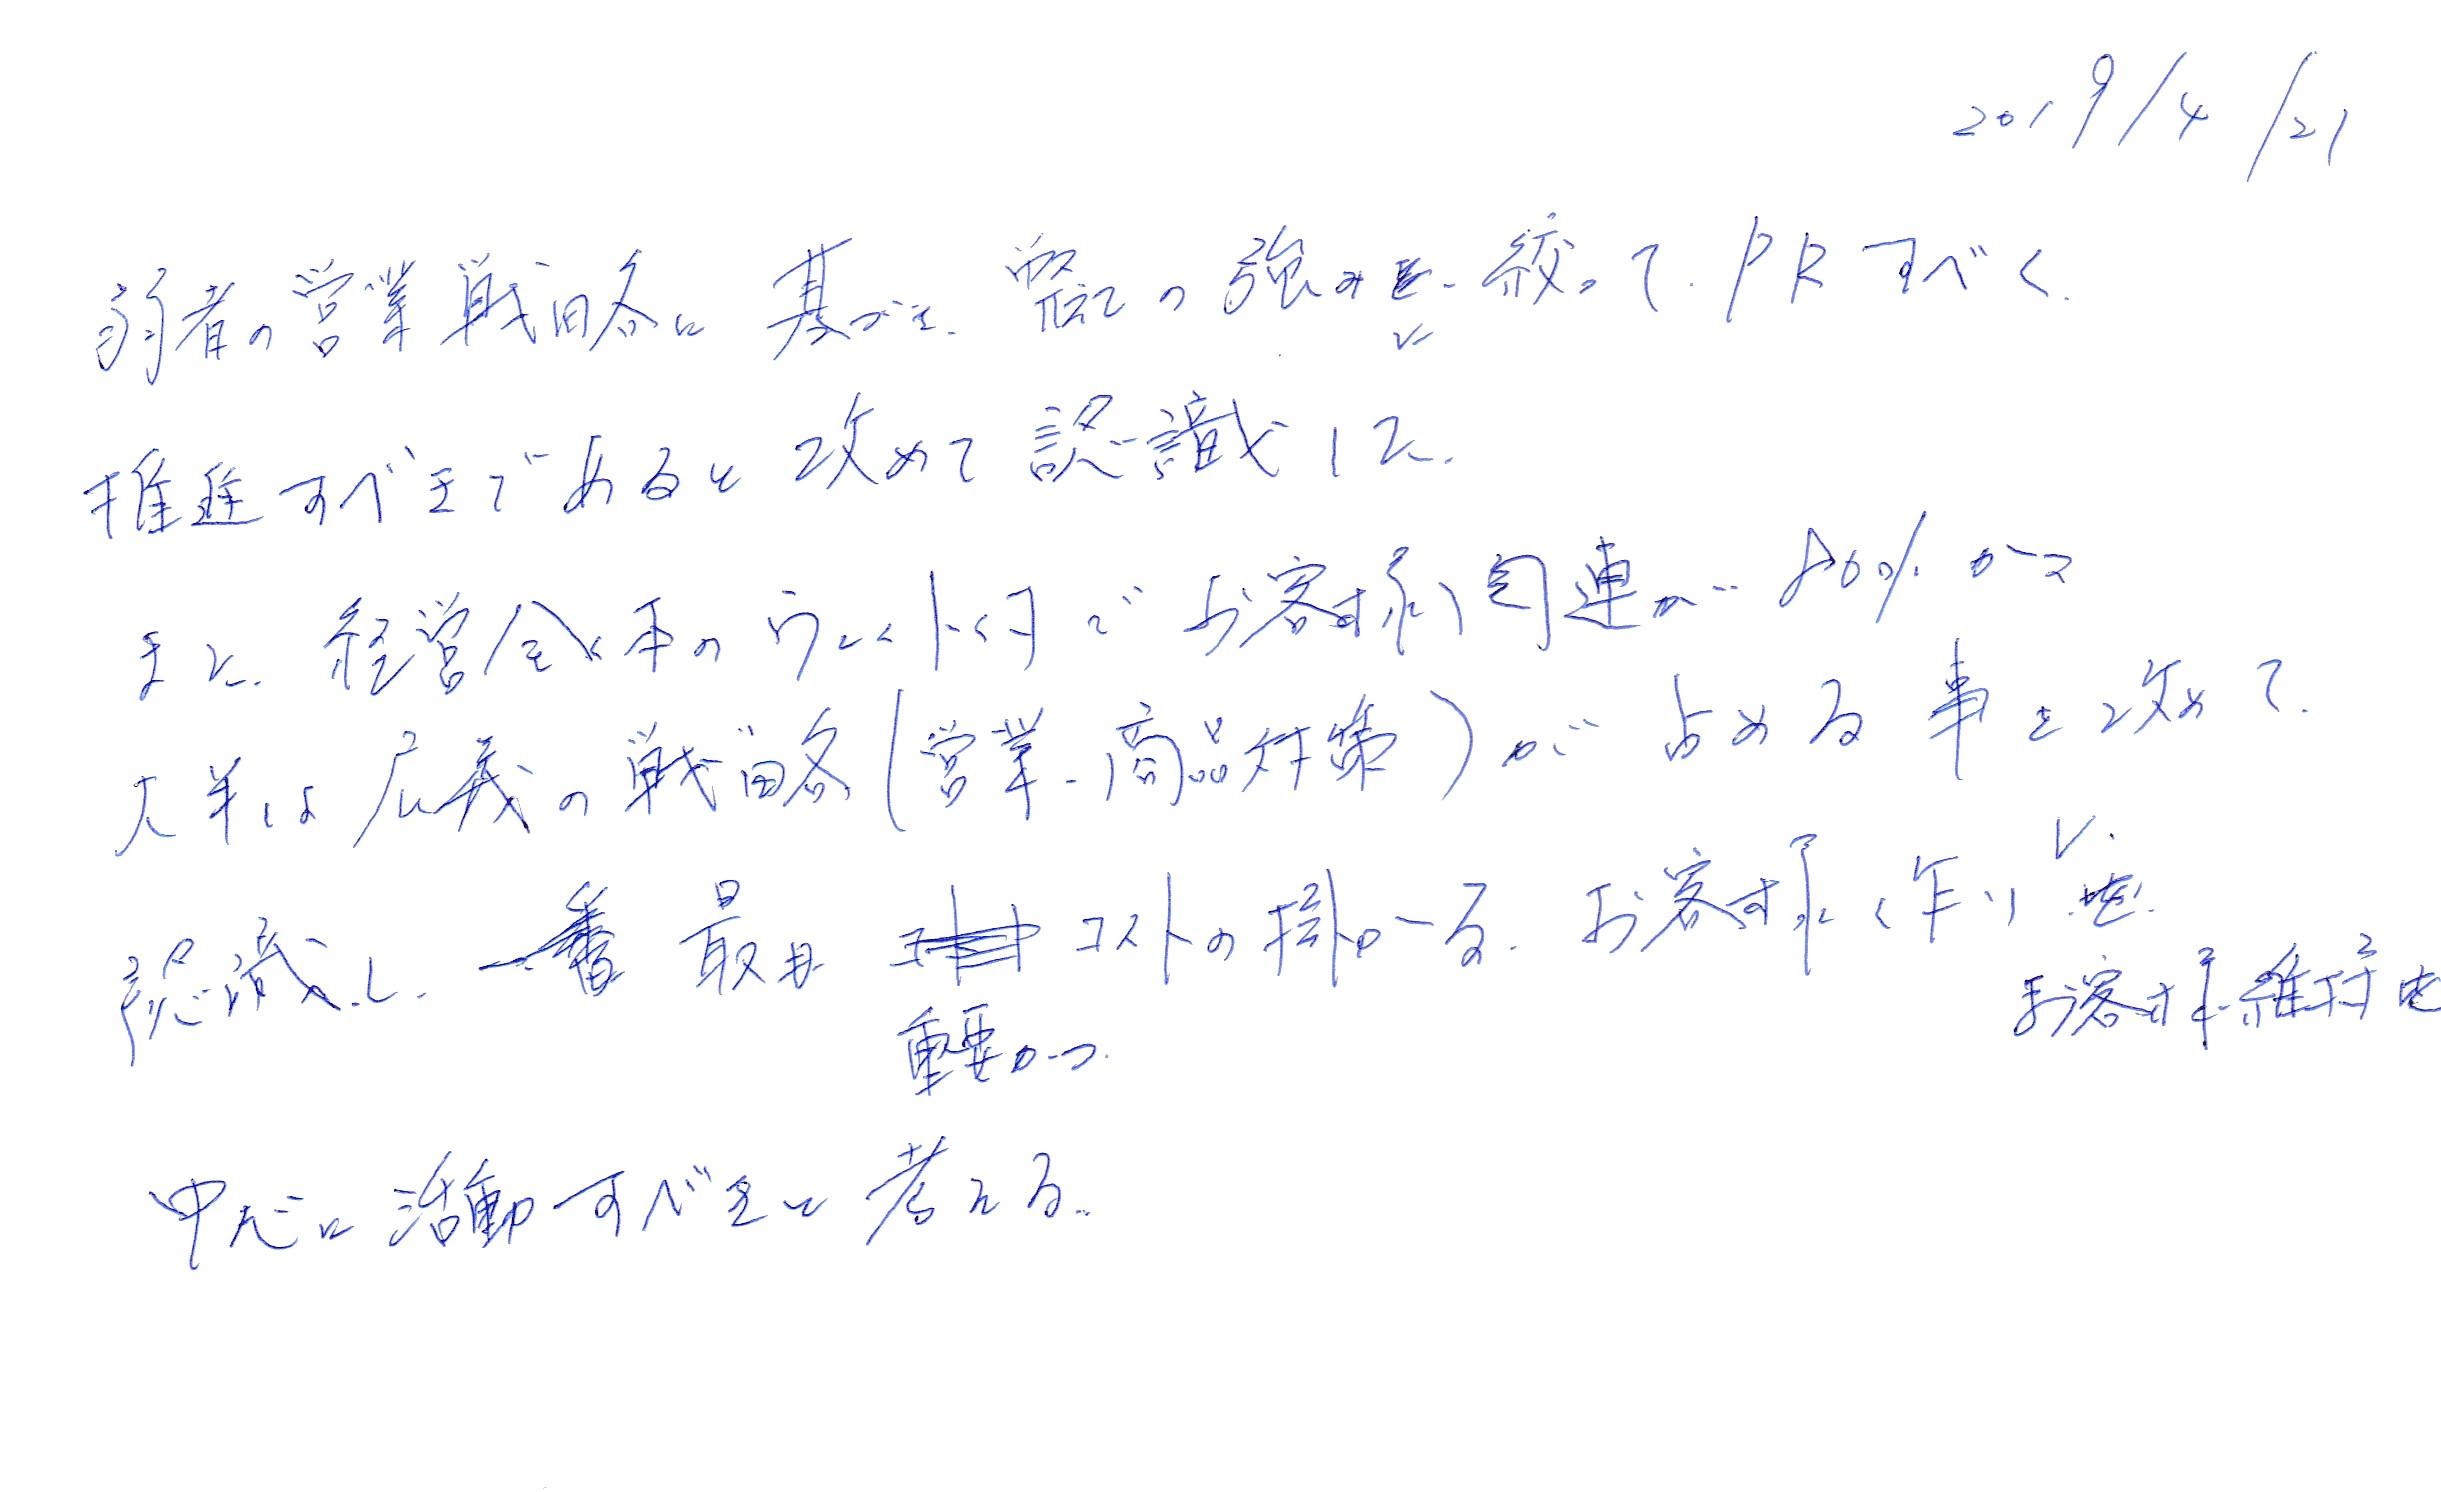 2019/4/21
弱者の営業戦略に基づき、弊社の強みに絞って、PRすべく、
推進すべきであると改めて認識した。
また、経営全体のウェイト付で お客様関連が 80% かつ
大半は広義の戦略(営業・商品対策)が 占める事を改めて、
認識し、一番最も コストの掛かる、お客様作り
重要かつ お客様維持を
中心に活動すべきと考える。